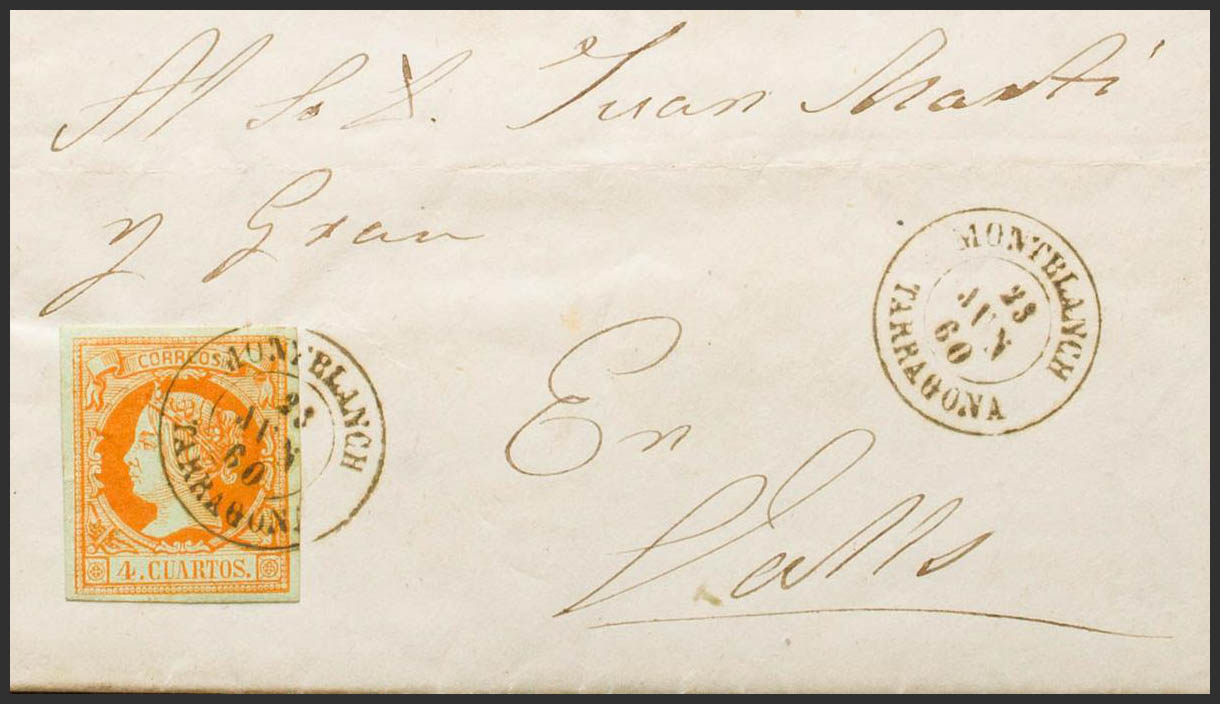 Al Sr D. Juan Martí
y Grau
En
Valls
CORREOS
4. CUARTOS.
MONTBLANCH
23
JUN
60
TARRAGONA
MONTBLANCH
23
JUN
60
TARRAGONA